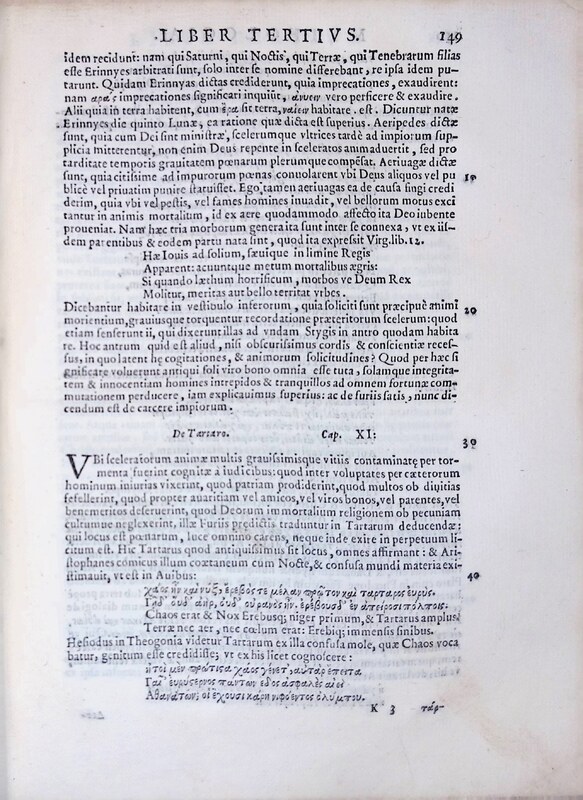 LIBER TERTIVS. 149
idem recidunt: nam qui Saturni, qui Noctis, qui Terræ, qui Tenebrarum filias
esse Erinnyes arbitrati sunt, solo inter se nomine differebant, re ipsa idem pu-
tarunt. Quidam Erinnyas dictas crediderunt, quia imprecationes, exaudirent:
nam ἀρὰς imprecationes significari inquiũt, ἀνύειν vero perficere & exaudire.
Alii quia in terra habitent, cum ἔρα sit terra, ναίειν habitare. est. Dicuntur natæ
Erinnyes die quinto Lunæ, ea ratione quæ dicta est superius. Aeripedes dictæ
sunt, quia cum Dei sint ministræ, scelerumque vltrices tardè ad impiorum sup-
plicia mitterentur, non enim Deus repente in sceleratos animaduertit, sed pro
tarditate temporis grauitatem pœnarum plerumque compẽsat. Aeriuagæ dictæ
sunt, quia citissime ad impurorum pœnas conuolarent vbi Deus aliquos vel pu 10
blicè vel priuatim punire statuisset. Ego tamen aeriuagas ea de causa fingi credi
derim, quia vbi vel pestis, vel fames homines inuadit, vel bellorum motus exci
tantur in animis mortalium, id ex aere quodammodo affecto ita Deo iubente
proueniat. Nam hæc tria morborum genera ita sunt inter se connexa, vt ex iis-
dem parentibus & eodem partu nata sint, quod ita expressit Virg. lib. 12.
Hæ Iouis ad solium, sæuique in limine Regis
Apparent: acuuntque metum mortalibus ægris:
Si quando læthum horrificum, morbos ve Deum Rex
Molitur, meritas aut bello territat vrbes.
Dicebantur habitare in vestibulo inferorum, quia soliciti sunt præcipuè animi 20
morientium, grauiusque torquentur recordatione præteritorum scelerum: quod
etiam senserunt ii, qui dixerunt illas ad vndam Stygis in antro quodam habita
re. Hoc antrum quid est aliud, nisi obscurissimus cordis & conscientiæ reces-
sus, in quo latent hę cogitationes, & animorum solicitudines? Quod per hæc si
gnificare voluerunt antiqui soli viro bono omnia esse tuta, solamque integrita-
tem & innocentiam homines intrepidos & tranquillos ad omnem fortunæ com-
mutationem perducere, iam explicauimus superius: ac de furiis satis, nunc di-
cendum est de carcere impiorum.
De Tartaro. Cap. XI: 30
VBi sceleratorum animæ multis grauissimisque vitiis contaminatę per tor-
menta fuerint cognitæ à iudicibus: quod inter voluptates per cæterorum
hominum iniurias vixerint, quod patriam prodiderint, quod multos ob diuitias
fefellerint, quod propter auaritiam vel amicos, vel viros bonos, vel parentes, vel
benemeritos deseruerint, quod Deorum immortalium religionem ob pecuniam
cultumue neglexerint, illæ Furiis prędictis traduntur in Tartarum deducendæ:
qui locus est pœnarum, luce omnino carens, neque inde exire in perpetuum li-
citum est. Hic Tartarus quod antiquissimus sit locus, omnes affirmant: & Ari-
stophanes comicus illum coætaneum cum Nocte, & confusa mundi materia exi-
stimauit, vt est in Auibus: 40
χάος ἦν καὶ νὺξ, ἔρεβός τε μέλαν πρῶτον καὶ τάρταρος εὐρύς.
Γῆ δ' οὐδ' ἀὴρ, οὐδ' οὐρανὸς ἦν. ἐρέβους δ' ἐν ἀπείροσι κόλποις.
Chaos erat & Nox Erebusq; niger primum, & Tartarus amplus.
Terræ nec aer, nec cœlum erat: Erebiq; immensis sinibus.
Hesiodus in Theogonia videtur Tartarum ex illa confusa mole, quæ Chaos voca
batur, genitum esse credidisse; vt ex his licet cognoscere:
ἤτοι μὲν πρώτιστα χάος γένετ', αὐτὰρ ἔπειτα
Γαῖ' εὐρύστερνος πάντων ἕδος ἀσφαλὲς αἰεὶ
Ἀθανάτων, οἳ ἔχουσι κάρη νιφόεντος ὀλύμπου.
K 3 τάρ-